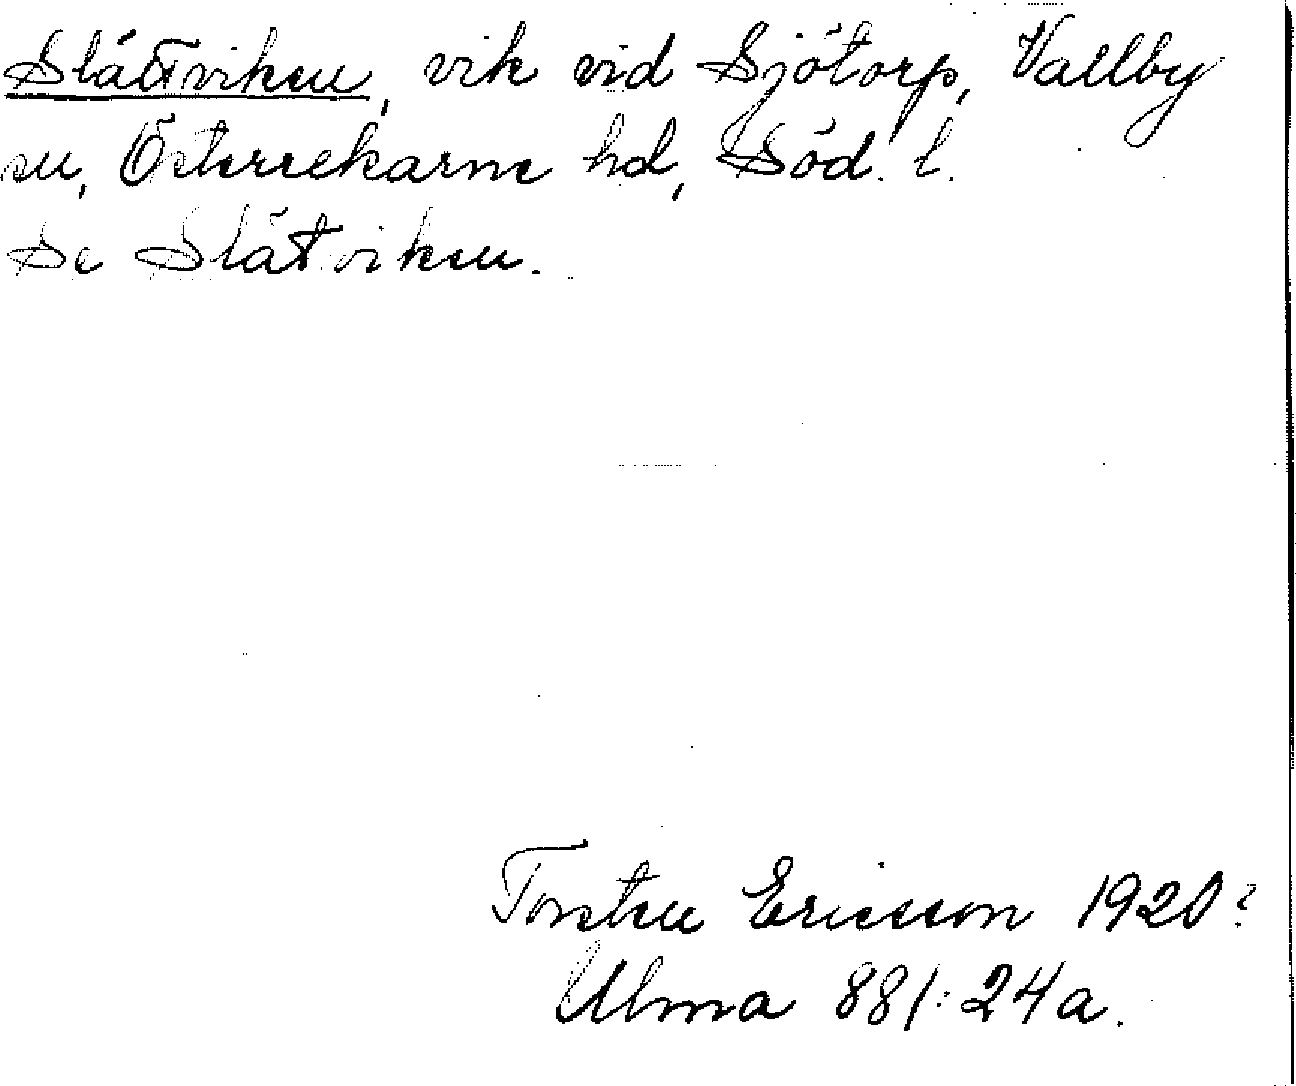 Slättviken, vik vid Sjötorp, Vallby
sn, Österrekarne hd, Söd. l.
Se Slätviken.
Torsten Ericsson 1920?
Ulma 881:24a.